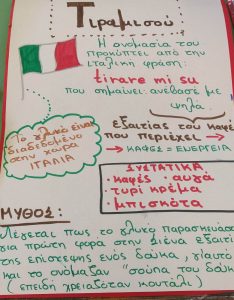 Τιραμισού
Η ονομασία του
προκύπτει από την
ιταλική φράση:
tirare mi su
που σημαίνει ανέβασέ με
ψηλά.
εξαιτίας του καφέ
που περιέχει →
→ ΚΑΦΕΣ = ΕΝΕΡΓΕΙΑ
Το γλυκό είναι
διαδεδομένο
στην χώρα
ΙΤΑΛΙΑ
ΣΥΣΤΑΤΙΚΑ
• καφές • αυγά
• τυρί κρέμα
• μπισκότα
ΜΥΘΟΣ:
Λέγεται πως το γλυκό παρασκευάσ
για πρώτη φορά στη Σιένα εξαιτί
της επίσκεψης ενός δούκα, γι'αυτό
και το ονόμαζαν "σούπα του δούκα
(επειδή χρειαζόταν κουτάλι)